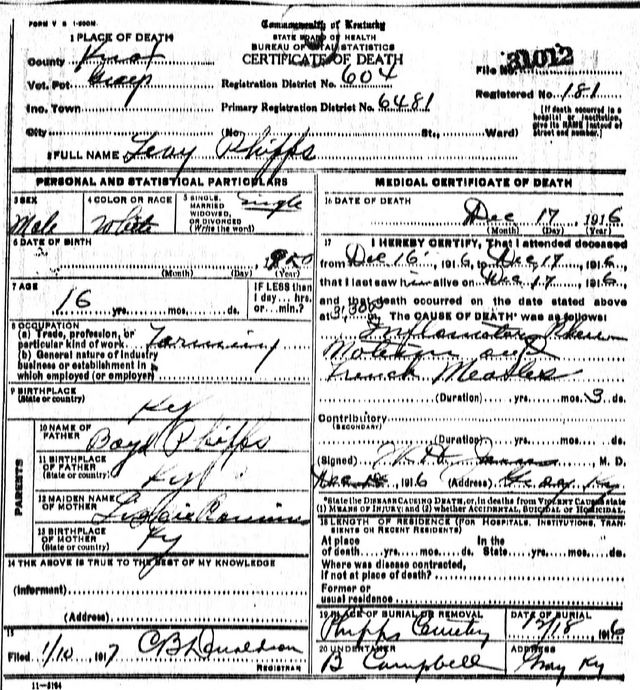 FORM V S 1-200M.
Commonwealth of Kentucky
STATE BOARD OF HEALTH
BUREAU OF VITAL STATISTICS
CERTIFICATE OF DEATH
1 PLACE OF DEATH
County Knox
Vot. Pct
Inc. Town
City (No. St., Ward)
Registration District No. 604
Primary Registration District No. 6481
File No. 31012
Registered No. 181
[If death occurred in a
hospital or institution,
give its NAME instead of
street and number.]
2 FULL NAME Leay Phipps
PERSONAL AND STATISTICAL PARTICULARS
3 SEX
Male
4 COLOR OR RACE
White
5 SINGLE,
MARRIED
WIDOWED,
OR DIVORCED
(Write the word)
Single
6 DATE OF BIRTH
(Month) (Day)
7 AGE
16 yrs. mos. ds.
IF LESS than
1 day... hrs.
or... min.?
8 OCCUPATION
(a) Trade, profession, or
particular kind of work Farming
(b) General nature of industry
business or establishment in
which employed (or employer)
9 BIRTHPLACE
(State or country)
Ky
PARENTS
10 NAME OF
FATHER
Boyd Phipps
11 BIRTHPLACE
OF FATHER
(State or country)
Ky
12 MAIDEN NAME
OF MOTHER
13 BIRTHPLACE
OF MOTHER
(State or country)
Ky
14 THE ABOVE IS TRUE TO THE BEST OF MY KNOWLEDGE
(Informant)
(Address)
15
Filed 1/10 1917 C B Donaldson
REGISTRAR
11-5194
MEDICAL CERTIFICATE OF DEATH
16 DATE OF DEATH
Dec 17 1916
(Month) (Day) (Year)
17 I HEREBY CERTIFY, That I attended deceased
from Dec 16 1916, to Dec 17 1916,
that I last saw him alive on Dec 17 1916,
and that death occurred on the date stated above
at 3:30 The CAUSE OF DEATH was as follows:
Inflamatory Rheu
Matism and
French Measles
(Duration) yrs. mos. 3 ds.
Contributory
(SECONDARY)
(Duration) yrs. mos. ds.
(Signed) M. D.
1916 (Address) Gray Ky
*State the DISEASE CAUSING DEATH, or, in deaths from VIOLENT CAUSES state
(1) MEANS OF INJURY; and (2) whether ACCIDENTAL, SUICIDAL or HOMICIDAL.
18 LENGTH OF RESIDENCE (FOR HOSPITALS, INSTITUTIONS, TRAN-
SIENTS OR RECENT RESIDENTS)
At place In the
of death yrs. mos. ds. State yrs. mos. ds.
Where was disease contracted,
if not at place of death?
Former or
usual residence
19 PLACE OF BURIAL OR REMOVAL
Phipps Cemetery
DATE OF BURIAL
12/18 1916
20 UNDERTAKER
B Campbell
ADDRESS
Gray Ky